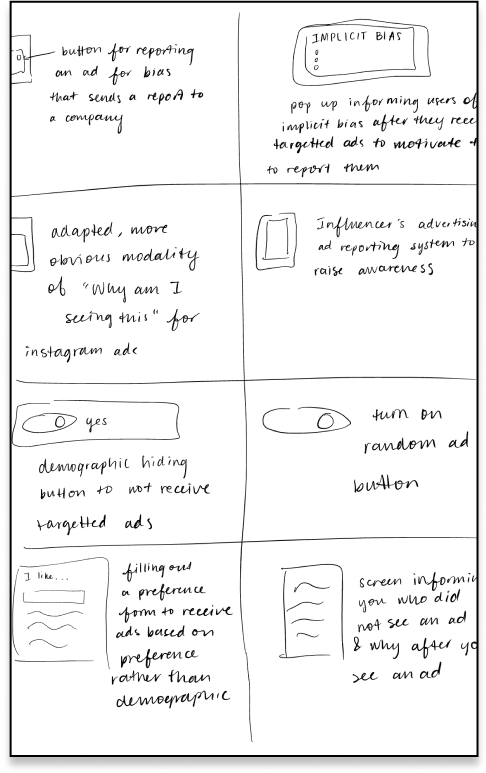 button for reporting
an ad for bias
that sends a report to
a company
IMPLICIT BIAS
pop up informing users of
implicit bias after they rece
targetted ads to motivate t
to report them
adapted, more
obvious modality
of "Why am I
seeing this" for
instagram ads
Influencer's advertisin
ad reporting system to
raise awareness
yes
demographic hiding
button to not receive
targetted ads
turn on
random ad
button
I like...
filling out
a preference
form to receive
ads based on
preference
rather than
demographic
screen informin
you who did
not see an ad
& why after yo
see an ad